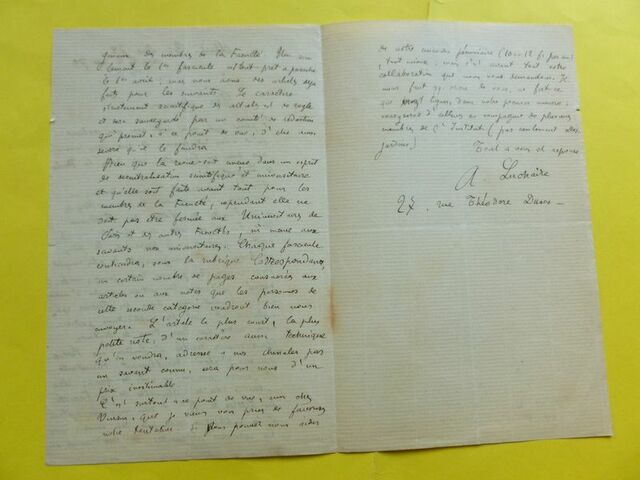 des membres de la Faculté. Non
le 1er fascicule est prêt à paraître
le 1er avril, mais nous avons des articles déjà
faits pour les suivants. Le caractère
strictement scientifique des articles est de règle
et sera sauvegardé par un comité de rédaction
qui promet, à ce point de vue, d'être aussi
sévère qu'il le faudra.
Bien que la revue soit conçue dans un esprit
de décentralisation scientifique et universitaire
et qu'elle soit faite avant tout pour les
membres de la Faculté, cependant elle ne
doit pas être fermée aux Universitaires de
Paris et des autres Facultés, ni même aux
savants non universitaires. Chaque fascicule
contiendra, sous la rubrique Correspondance,
un certain nombre de pages consacrées aux
articles ou aux notes que les personnes de
cette seconde catégorie voudront bien nous
envoyer. L'article le plus court, la plus
petite note, d'un caractère aussi technique
qu'on voudra, adressée à nos Annales par
un savant connu, sera pour nous d'un
prix inestimable.
C'est surtout à ce point de vue, mon cher
que je viens vous prier de favoriser
notre tentative. Si vous pouvez nous aider
de votre concours pécuniaire (10 ou 12 f. par an)
tant mieux, mais c'est avant tout votre
collaboration que nous vous demandons. Il
nous faut de vous, ne fût-ce
que vingt lignes, dans notre premier numéro.
Vous serez d'ailleurs en compagnie de plusieurs
membres de l'Institut (pas seulement des
Tout à vous et réponse
A. Luchaire
27, rue Théodore Ducos